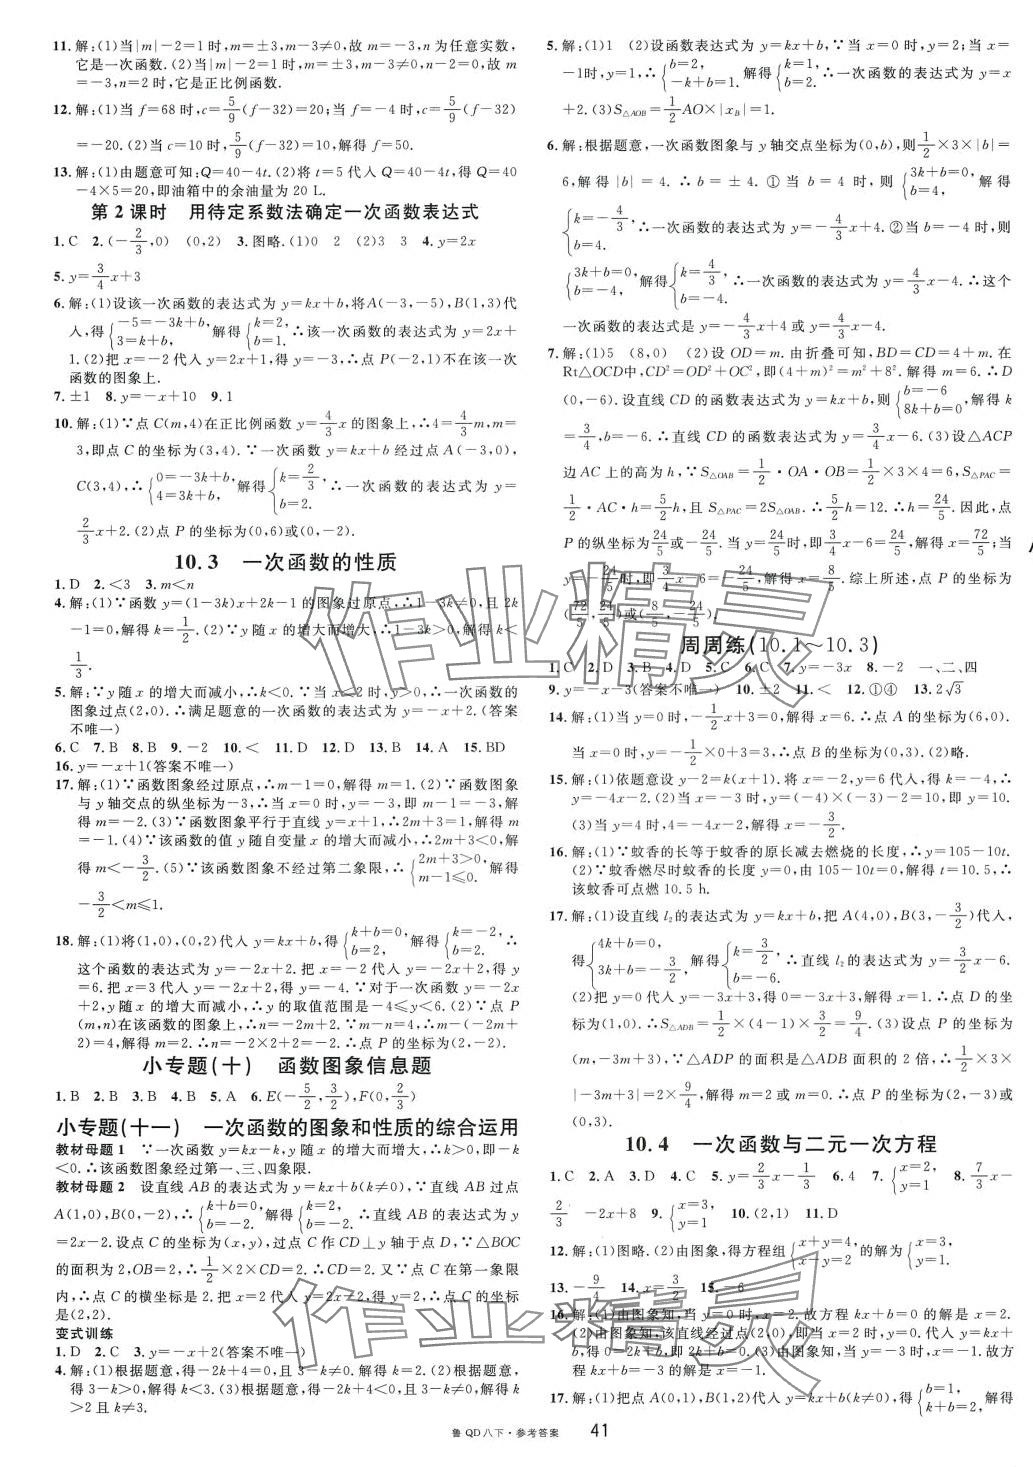 11.解:(1)当|m|-2=1时,m=±3,m-3≠0,故m=-3,n为任意实数,
它是一次函数.(2)当|m|-2=1时,m=±3,m-3≠0,n-2=0,故m
=-3,n=2时,它是正比例函数.
12.解:(1)当f=68时,c=5/9(f-32)=20;当f=-4时,c=5/9(f-32)
=-20.(2)当c=10时,5/9(f-32)=10,解得f=50.
13.解:(1)由题意可知:Q=40-4t.(2)将t=5代入Q=40-4t,得Q=40
-4×5=20,即油箱中的余油量为20 L.
第2课时 用待定系数法确定一次函数表达式
1.C 2.(-2/3,0) (0,2) 3.图略.(1)0 2 (2)3 3 4.y=2x
5.y=3/4x+3
6.解:(1)设该一次函数的表达式为y=kx+b,将A(-3,-5),B(1,3)代
入,得{-5=-3k+b, 3=k+b, 解得{k=2, b=1. ∴该一次函数的表达式为y=2x+
1.(2)把x=-2代入y=2x+1,得y=-3,∴点P(-2,1)不在该一次
函数的图象上.
7.±1 8.y=-x+10 9.1
10.解:(1)∵点C(m,4)在正比例函数y=4/3x的图象上,∴4=4/3m,m=
3,即点C的坐标为(3,4).∵一次函数y=kx+b经过点A(-3,0),
C(3,4),∴{0=-3k+b, 4=3k+b, 解得{k=2/3, b=2. ∴一次函数的表达式为y=
2/3x+2.(2)点P的坐标为(0,6)或(0,-2).
10.3 一次函数的性质
1.D 2.<3 3.m<n
4.解:(1)∵函数y=(1-3k)x+2k-1的图象过原点,∴1-3k≠0,且2k
-1=0,解得k=1/2.(2)∵y随x的增大而增大,∴1-3k>0,解得k<
1/3.
5.解:∵y随x的增大而减小,∴k<0.∵当x<2时,y>0,∴一次函数的
图象过点(2,0).∴满足题意的一次函数的表达式为y=-x+2.(答案
不唯一)
6.C 7.B 8.B 9.-2 10.< 11.D 12.D 13.B 14.A 15.BD
16.y=-x+1(答案不唯一)
17.解:(1)∵函数图象经过原点,∴m-1=0,解得m=1.(2)∵函数图象
与y轴交点的纵坐标为-3,∴当x=0时,y=-3,即m-1=-3,解
得m=-2.(3)∵函数图象平行于直线y=x+1,∴2m+3=1,解得m
=-1.(4)∵该函数的值y随自变量x的增大而减小,∴2m+3<0,解
得m<-3/2.(5)∵该函数图象不经过第二象限,∴{2m+3>0, m-1≤0. 解得
-3/2<m≤1.
18.解:(1)将(1,0),(0,2)代入y=kx+b,得{k+b=0, b=2, 解得{k=-2, b=2. ∴
这个函数的表达式为y=-2x+2.把x=-2代入y=-2x+2,得y
=6.把x=3代入y=-2x+2,得y=-4.∵对于一次函数y=-2x
+2,y随x的增大而减小,∴y的取值范围是-4≤y<6.(2)∵点P
(m,n)在该函数的图象上,∴n=-2m+2.∵m-n=4,∴m-(-2m+
2)=4,解得m=2.∴n=-2×2+2=-2.∴点P的坐标为(2,-2).
小专题(十) 函数图象信息题
1.B 2.B 3.B 4.B 5.A 6.E(-5/2,3/2),F(0,2/3)
小专题(十一) 一次函数的图象和性质的综合运用
教材母题1 ∵一次函数y=kx-k,y随x的增大而增大,∴k>0,即-k
<0.∴该函数图象经过第一、三、四象限.
教材母题2 设直线AB的表达式为y=kx+b(k≠0),∵直线AB过点
A(1,0),B(0,-2),∴{k+b=0, b=-2. 解得{k=2, b=-2. ∴直线AB的表达式为y
=2x-2.设点C的坐标为(x,y),过点C作CD⊥y轴于点D,∵△BOC
的面积为2,OB=2,∴1/2×2×CD=2.∴CD=2.又∵点C在第一象限
内,∴点C的横坐标是2.把x=2代入y=2x-2,得y=2.∴点C的坐标
是(2,2).
变式训练
1.D 2.C 3.y=-x+2(答案不唯一)
4.解:(1)根据题意,得-2k+4=0,且3-k≠0.解得k=2.(2)根据题意,
得3-k>0,解得k<3.(3)根据题意,得-2k+4<0,且3-k≠0.解得k
>2且k≠3.
5.解:(1)1 (2)设函数表达式为y=kx+b,∵当x=0时,y=2;当x=
-1时,y=1,∴{b=2, -k+b=1. 解得{k=1, b=2. ∴一次函数的表达式为y=x
+2.(3)S△AOB=1/2AO×|xB|=1.
6.解:根据题意,一次函数图象与y轴交点坐标为(0,b),则1/2×3×|b|=
6,解得|b|=4.∴b=±4.①当b=4时,则{3k+b=0, b=4, 解得
{k=-4/3, b=4. ∴一次函数的表达式为y=-4/3x+4.②当b=-4时,则
{3k+b=0, b=-4, 解得{k=4/3, b=-4. ∴一次函数的表达式为y=4/3x-4.∴这个
一次函数的表达式是y=-4/3x+4或y=4/3x-4.
7.解:(1)5 (8,0) (2)设OD=m.由折叠可知,BD=CD=4+m.在
Rt△OCD中,CD²=OD²+OC²,即(4+m)²=m²+8².解得m=6.∴D
(0,-6).设直线CD的函数表达式为y=kx+b,则{b=-6 8k+b=0, 解得k
=3/4,b=-6.∴直线CD的函数表达式为y=3/4x-6.(3)设△ACP
边AC上的高为h,∵S△OAB=1/2·OA·OB=1/2×3×4=6,S△PAC=
1/2·AC·h=5/2h,且S△PAC=2S△OAB.∴5/2h=12.∴h=24/5.因此,点
P的纵坐标为24/5或-24/5.当y=24/5时,即3/4x-6=24/5,解得x=72/5;当
y=-24/5时,即3/4x-6=-24/5,解得x=8/5.综上所述,点P的坐标为
(72/5,24/5)或(8/5,-24/5).
周周练(10.1~10.3)
1.C 2.D 3.B 4.D 5.C 6.C 7.y=-3x 8.-2 一、二、四
9.y=-x-3(答案不唯一) 10.±2 11.< 12.①④ 13.2√3
14.解:(1)当y=0时,-1/2x+3=0,解得x=6.∴点A的坐标为(6,0).
当x=0时,y=-1/2×0+3=3,∴点B的坐标为(0,3).(2)略.
15.解:(1)依题意设y-2=k(x+1).将x=-2,y=6代入,得k=-4,∴
y=-4x-2.(2)当x=-3时,y=(-4)×(-3)-2=10,即y=10.
(3)当y=4时,4=-4x-2,解得x=-3/2.
16.解:(1)∵蚊香的长等于蚊香的原长减去燃烧的长度,∴y=105-10t.
(2)∵蚊香燃尽时蚊香的长度y=0,由105-10t=0,解得t=10.5,∴
该蚊香可点燃10.5 h.
17.解:(1)设直线l₂的表达式为y=kx+b,把A(4,0),B(3,-3/2)代入,
得{4k+b=0, 3k+b=-3/2, 解得{k=3/2, b=-6. ∴直线l₂的表达式为y=3/2x-6.
(2)把y=0代入y=-3x+3,得0=-3x+3,解得x=1.∴点D的坐
标为(1,0).∴S△ADB=1/2×(4-1)×3/2=9/4.(3)设点P的坐标为
(m,-3m+3),∵△ADP的面积是△ADB面积的2倍,∴1/2×3×
|-3m+3|=2×9/4,解得m=2或m=0.∴点P的坐标为(2,-3)或
(0,3).
10.4 一次函数与二元一次方程
1.C 2.A 3.D 4.C 5.y=2/3x-1/3 6.4 7.{x=2, y=1 8.7/3x-
2/3 -2x+8 9.{x=3, y=1 10.(2,1) 11.D
12.解:(1)图略.(2)由图象,得方程组{x+y=4, x-y=2 的解为{x=3, y=1.
13.-9/4 14.x=3 15.-6
16.解:(1)由图象知,当y=0时,x=2.故方程kx+b=0的解是x=2.
(2)由图象知,该直线经过点(2,0),即当x=2时,y=0.代入y=kx+
b,得0=2k+b,即2k+b=0.(3)由图象知,当y=-3时,x=-1.故方
程kx+b=-3的解是x=-1.
17.解:(1)把点A(0,1),B(1,2)代入y=kx+b(k≠0),得{b=1, k+b=2, 解得
鲁 QD八下·参考答案 41
作业精灵
作业精灵